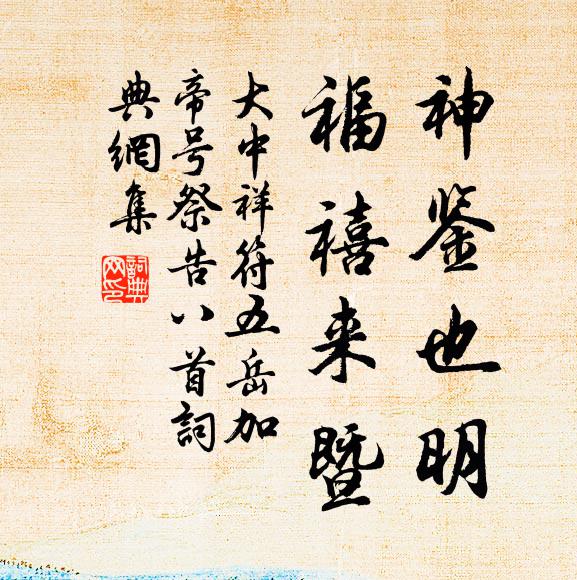 神鉴也明
福禧来暨
大中祥符五岳加
帝号祭告八首詞
典網集
詞典網印